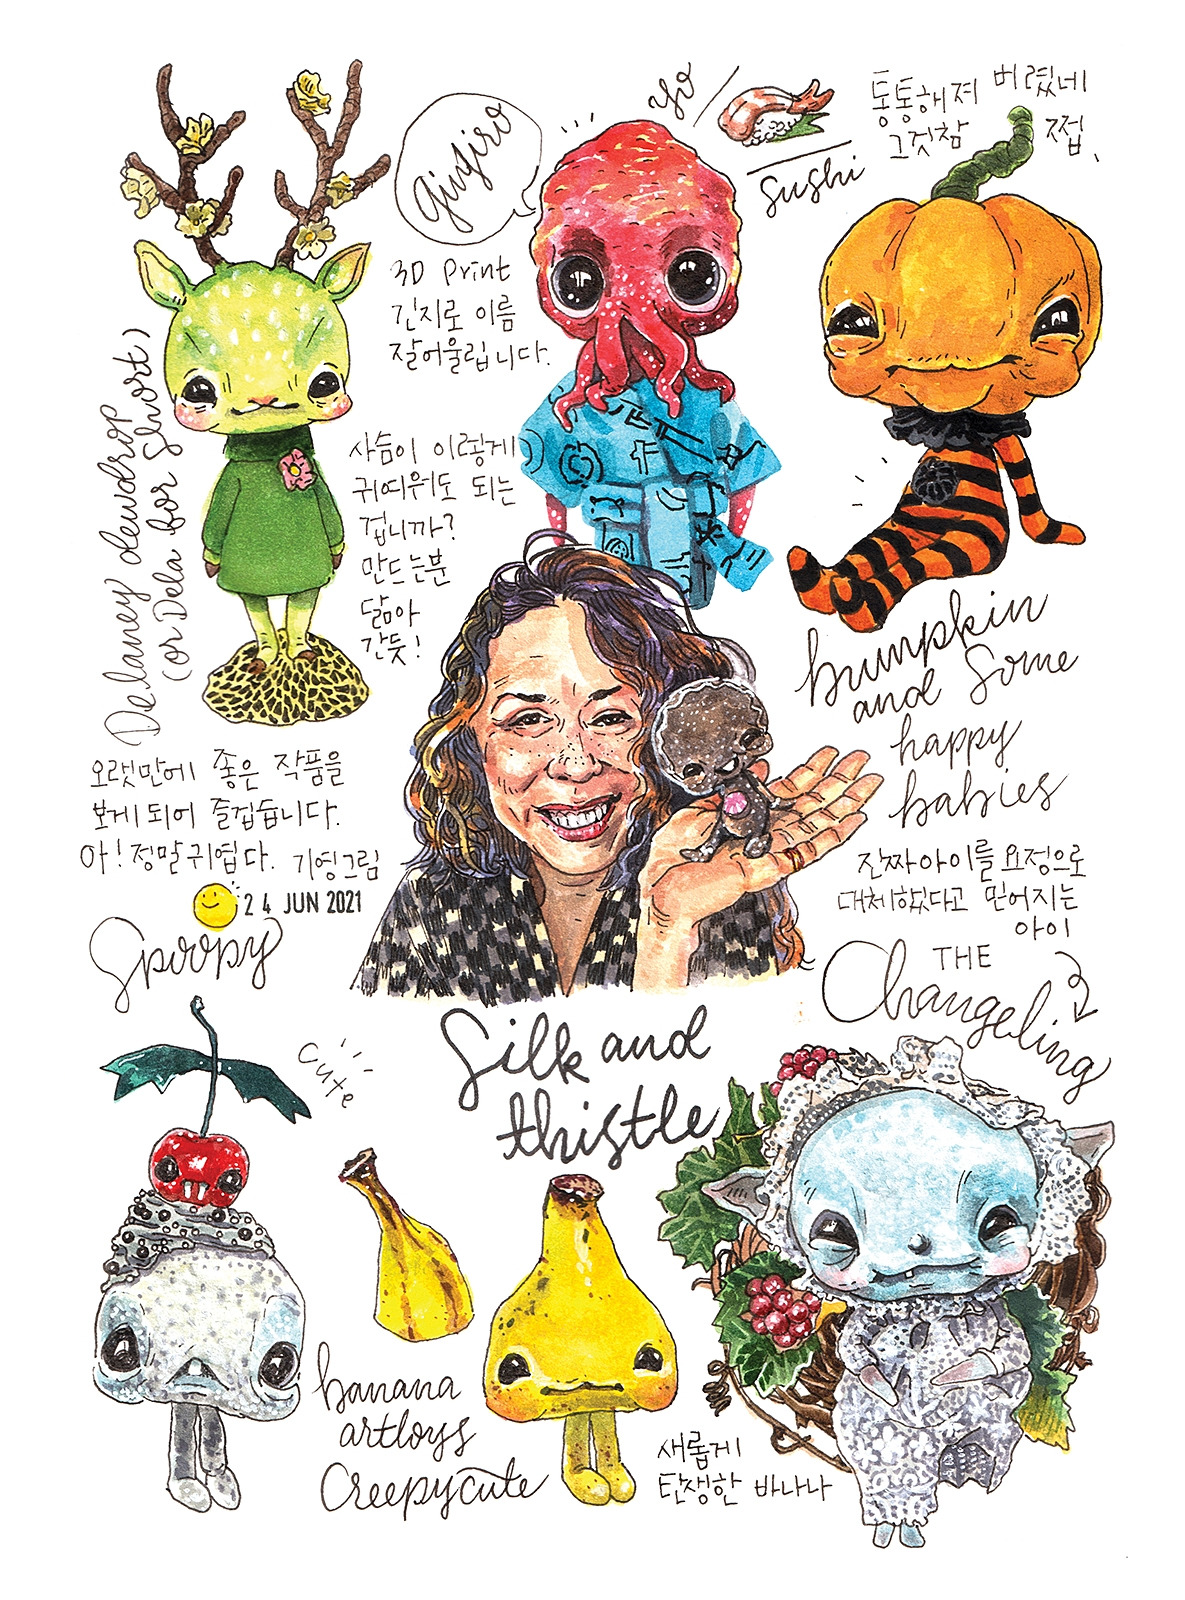 ginjiro
yo
sushi
통통해져 버렸네
그것참 쩝.
3D Print
긴지로 이름
잘어울립니다.
Delaney dewdrop
(or Dela for Short)
사슴이 이렇게
귀여워도 되는
겁니까?
만드는분
닮아
간듯!
bumpkin
and Some
happy
babies
오랫만에 좋은 작품을
보게되어 즐겁습니다.
아! 정말귀엽다. 기영그림
24 JUN 2021
진짜아이를 요정으로
대체하였다고 믿어지는
아이
THE
Changeling
Spoopy
cute
Silk and
thistle
banana
artloys
Creepycute
새롭게
탄생한 바나나